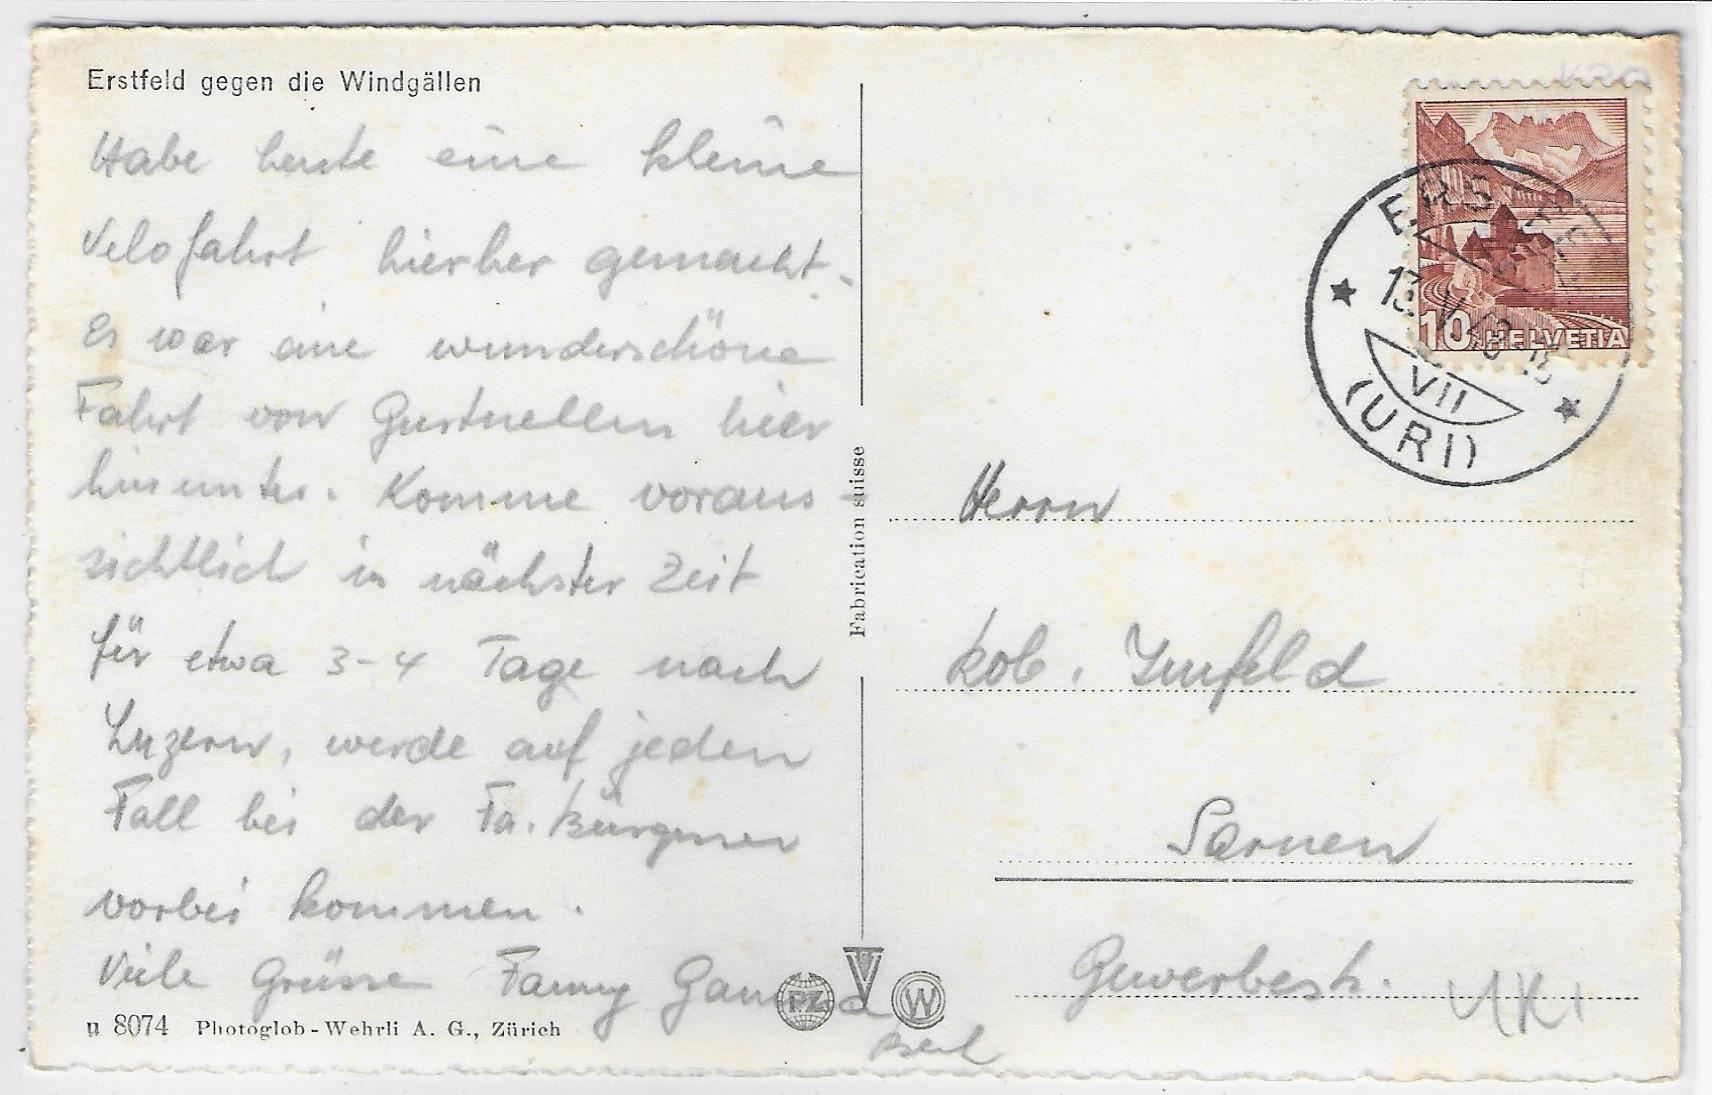 Erstfeld gegen die Windgällen
Habe heute eine kleine
Velofahrt hierher gemacht.
Es war eine wunderschöne
Fahrt von Gurtnellen hier
hinunter. Komme voraus-
sichtlich in nächster Zeit
für etwa 3-4 Tage nach
Luzern, werde auf jeden
Fall bei der Fa. Bürgisser
vorbei kommen.
Viele Grüsse Fanny
u 8074 Photoglob-Wehrli A. G., Zürich
Fabrication suisse
PZ V W
HELVETIA
10
ERSTFELD
VII
(URI)
Herrn
Rob. Imfeld
Sarnen
Gewerbestr.